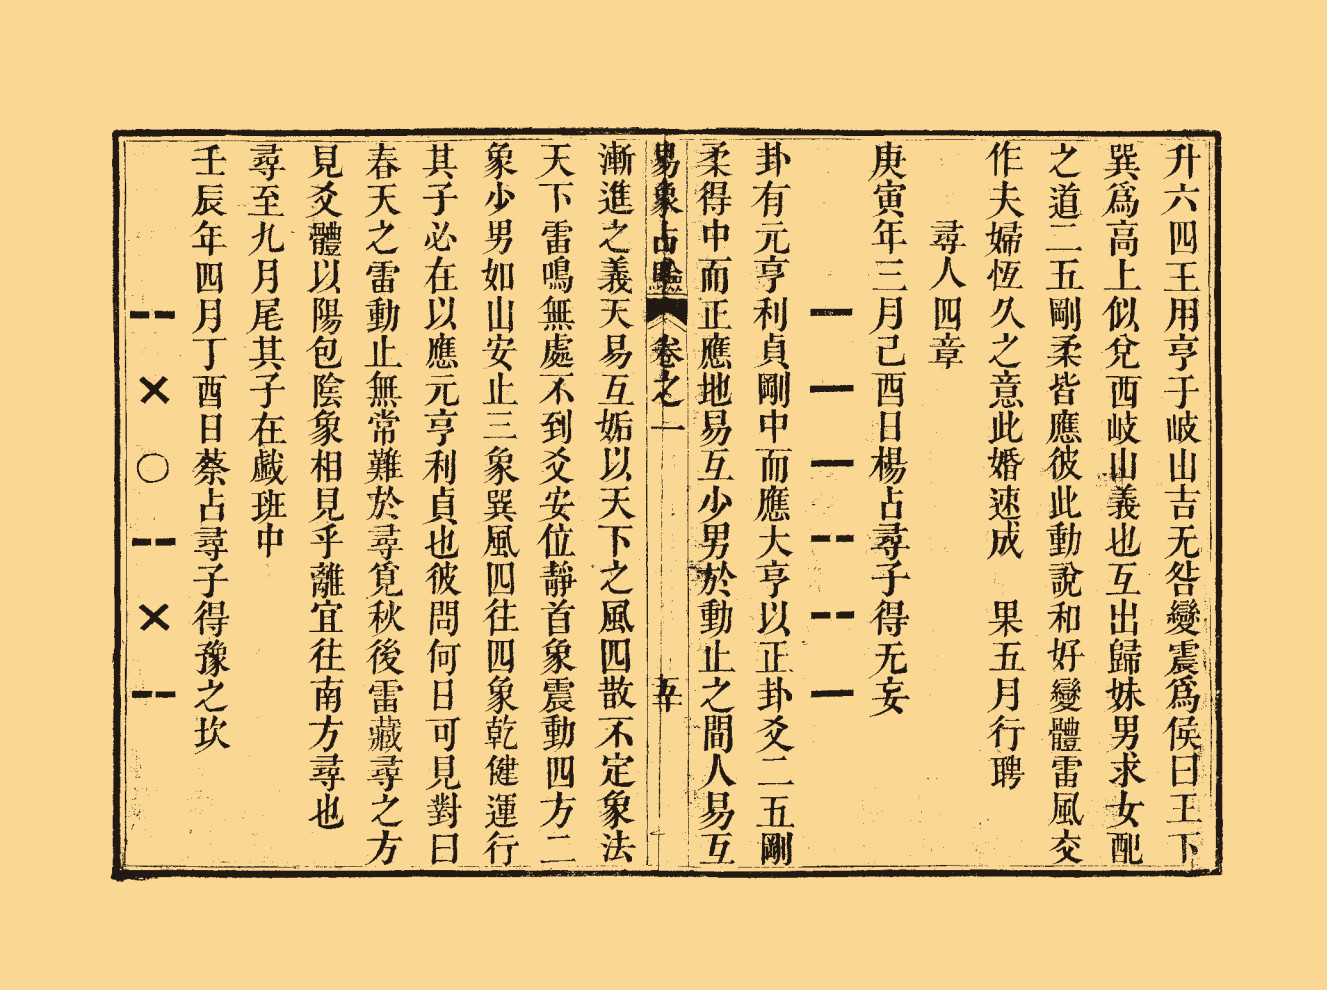 升六四王用亨于岐山吉无咎變震爲侯曰王下
巽爲高上似兌西岐山義也互出歸妹男求女配
之道二五剛柔皆應彼此動說和好變體雷風交
作夫婦恆久之意此婚速成　果五月行聘
尋人四章
庚寅年三月己酉日楊占尋子得无妄
卦有元亨利貞剛中而應大亨以正卦爻二五剛
柔得中而正應地易互少男於動止之間人易互
易象占驗　卷之一　五十
漸進之義天易互姤以天下之風四散不定象法
天下雷鳴無處不到爻安位靜首象震動四方二
象少男如山安止三象巽風四往四象乾健運行
其子必在以應元亨利貞也彼問何日可見對曰
春天之雷動止無常難於尋覓秋後雷藏尋之方
見爻體以陽包陰象相見乎離宜往南方尋也
尋至九月尾其子在戲班中
壬辰年四月丁酉日蔡占尋子得豫之坎